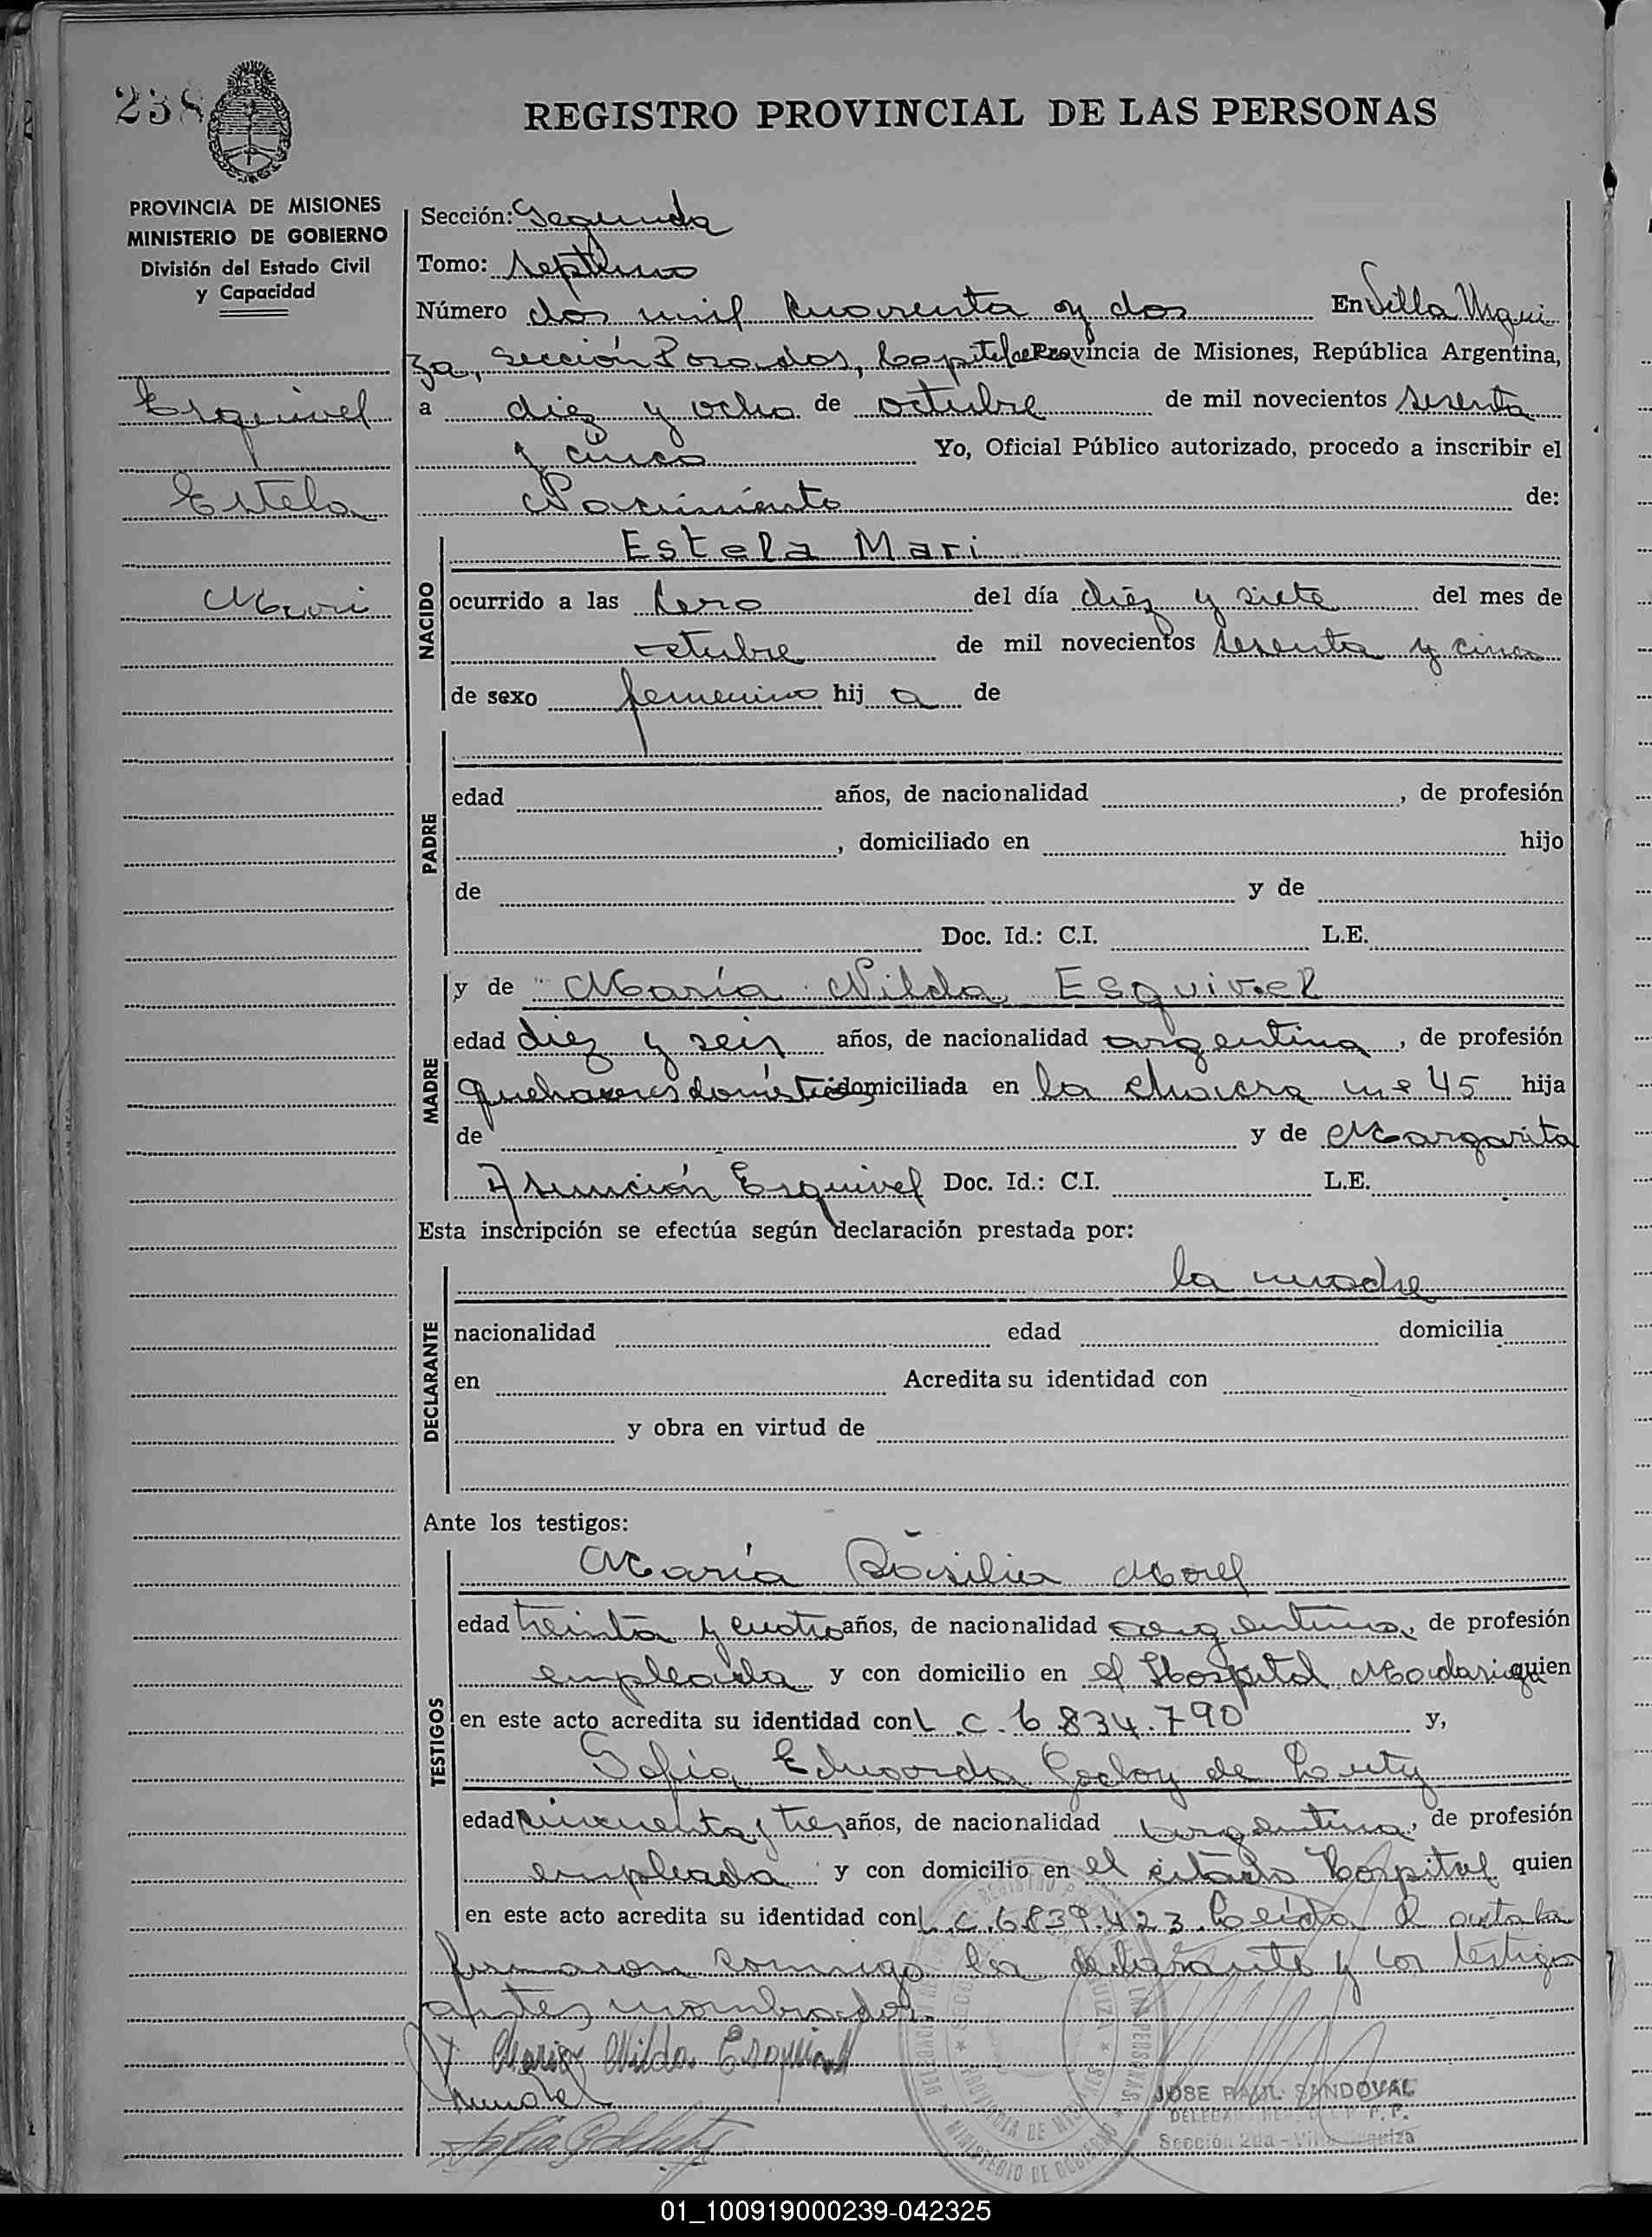 238
REGISTRO PROVINCIAL DE LAS PERSONAS
PROVINCIA DE MISIONES
MINISTERIO DE GOBIERNO
División del Estado Civil
y Capacidad
Esquivel
Estela
Mari
Sección: Segunda
Tomo: septimo
Número dos mil cuarenta y dos En Villa Urqui
za, sección Posadas, Capital de Provincia de Misiones, República Argentina,
a diez y ocho de octubre de mil novecientos sesenta
y cinco Yo, Oficial Público autorizado, procedo a inscribir el
Nacimiento de:
NACIDO
Estela Mari
ocurrido a las cero del día diez y siete del mes de
octubre de mil novecientos sesenta y cinco
de sexo femenino hij a de
PADRE
edad años, de nacionalidad , de profesión
, domiciliado en hijo
de y de
Doc. Id.: C.I. L.E.
MADRE
y de María Nilda Esquivel
edad diez y seis años, de nacionalidad argentina, de profesión
quehaceres domésticos domiciliada en la chacra nº 45 hija
de y de Margarita
Asunción Esquivel Doc. Id.: C.I. L.E.
Esta inscripción se efectúa según declaración prestada por:
DECLARANTE
la madre
nacionalidad edad domicilia
en Acredita su identidad con
y obra en virtud de
Ante los testigos:
TESTIGOS
María Básilia Morel
edad treinta y cuatro años, de nacionalidad argentina, de profesión
empleada y con domicilio en el Hospital Madariaga quien
en este acto acredita su identidad con L.C. 6.834.790 y,
Sofía Eduarda Godoy de
edad cincuenta y tres años, de nacionalidad argentina, de profesión
empleada y con domicilio en el citado Hospital quien
en este acto acredita su identidad con L.C. 6.839.423 Leída el acta la
firmaron conmigo la declarante y los testigos
antes nombrados.
Maria Nilda Esquivel
JOSE RAUL SANDOVAL
Sección 2da - Villa Urquiza
01_100919000239-042325